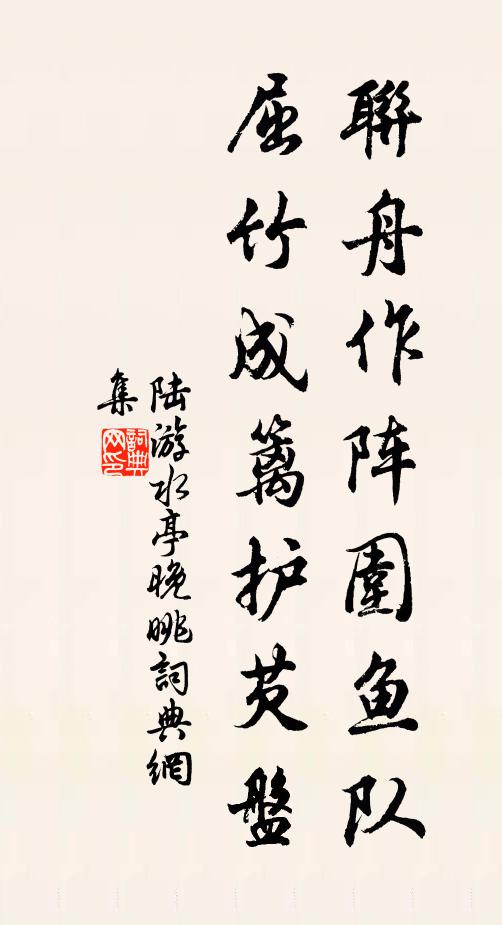 聯舟作阵圍鱼队
屈竹成篱护芡盤
陆游水亭晚眺詞典網
集
詞典
网印